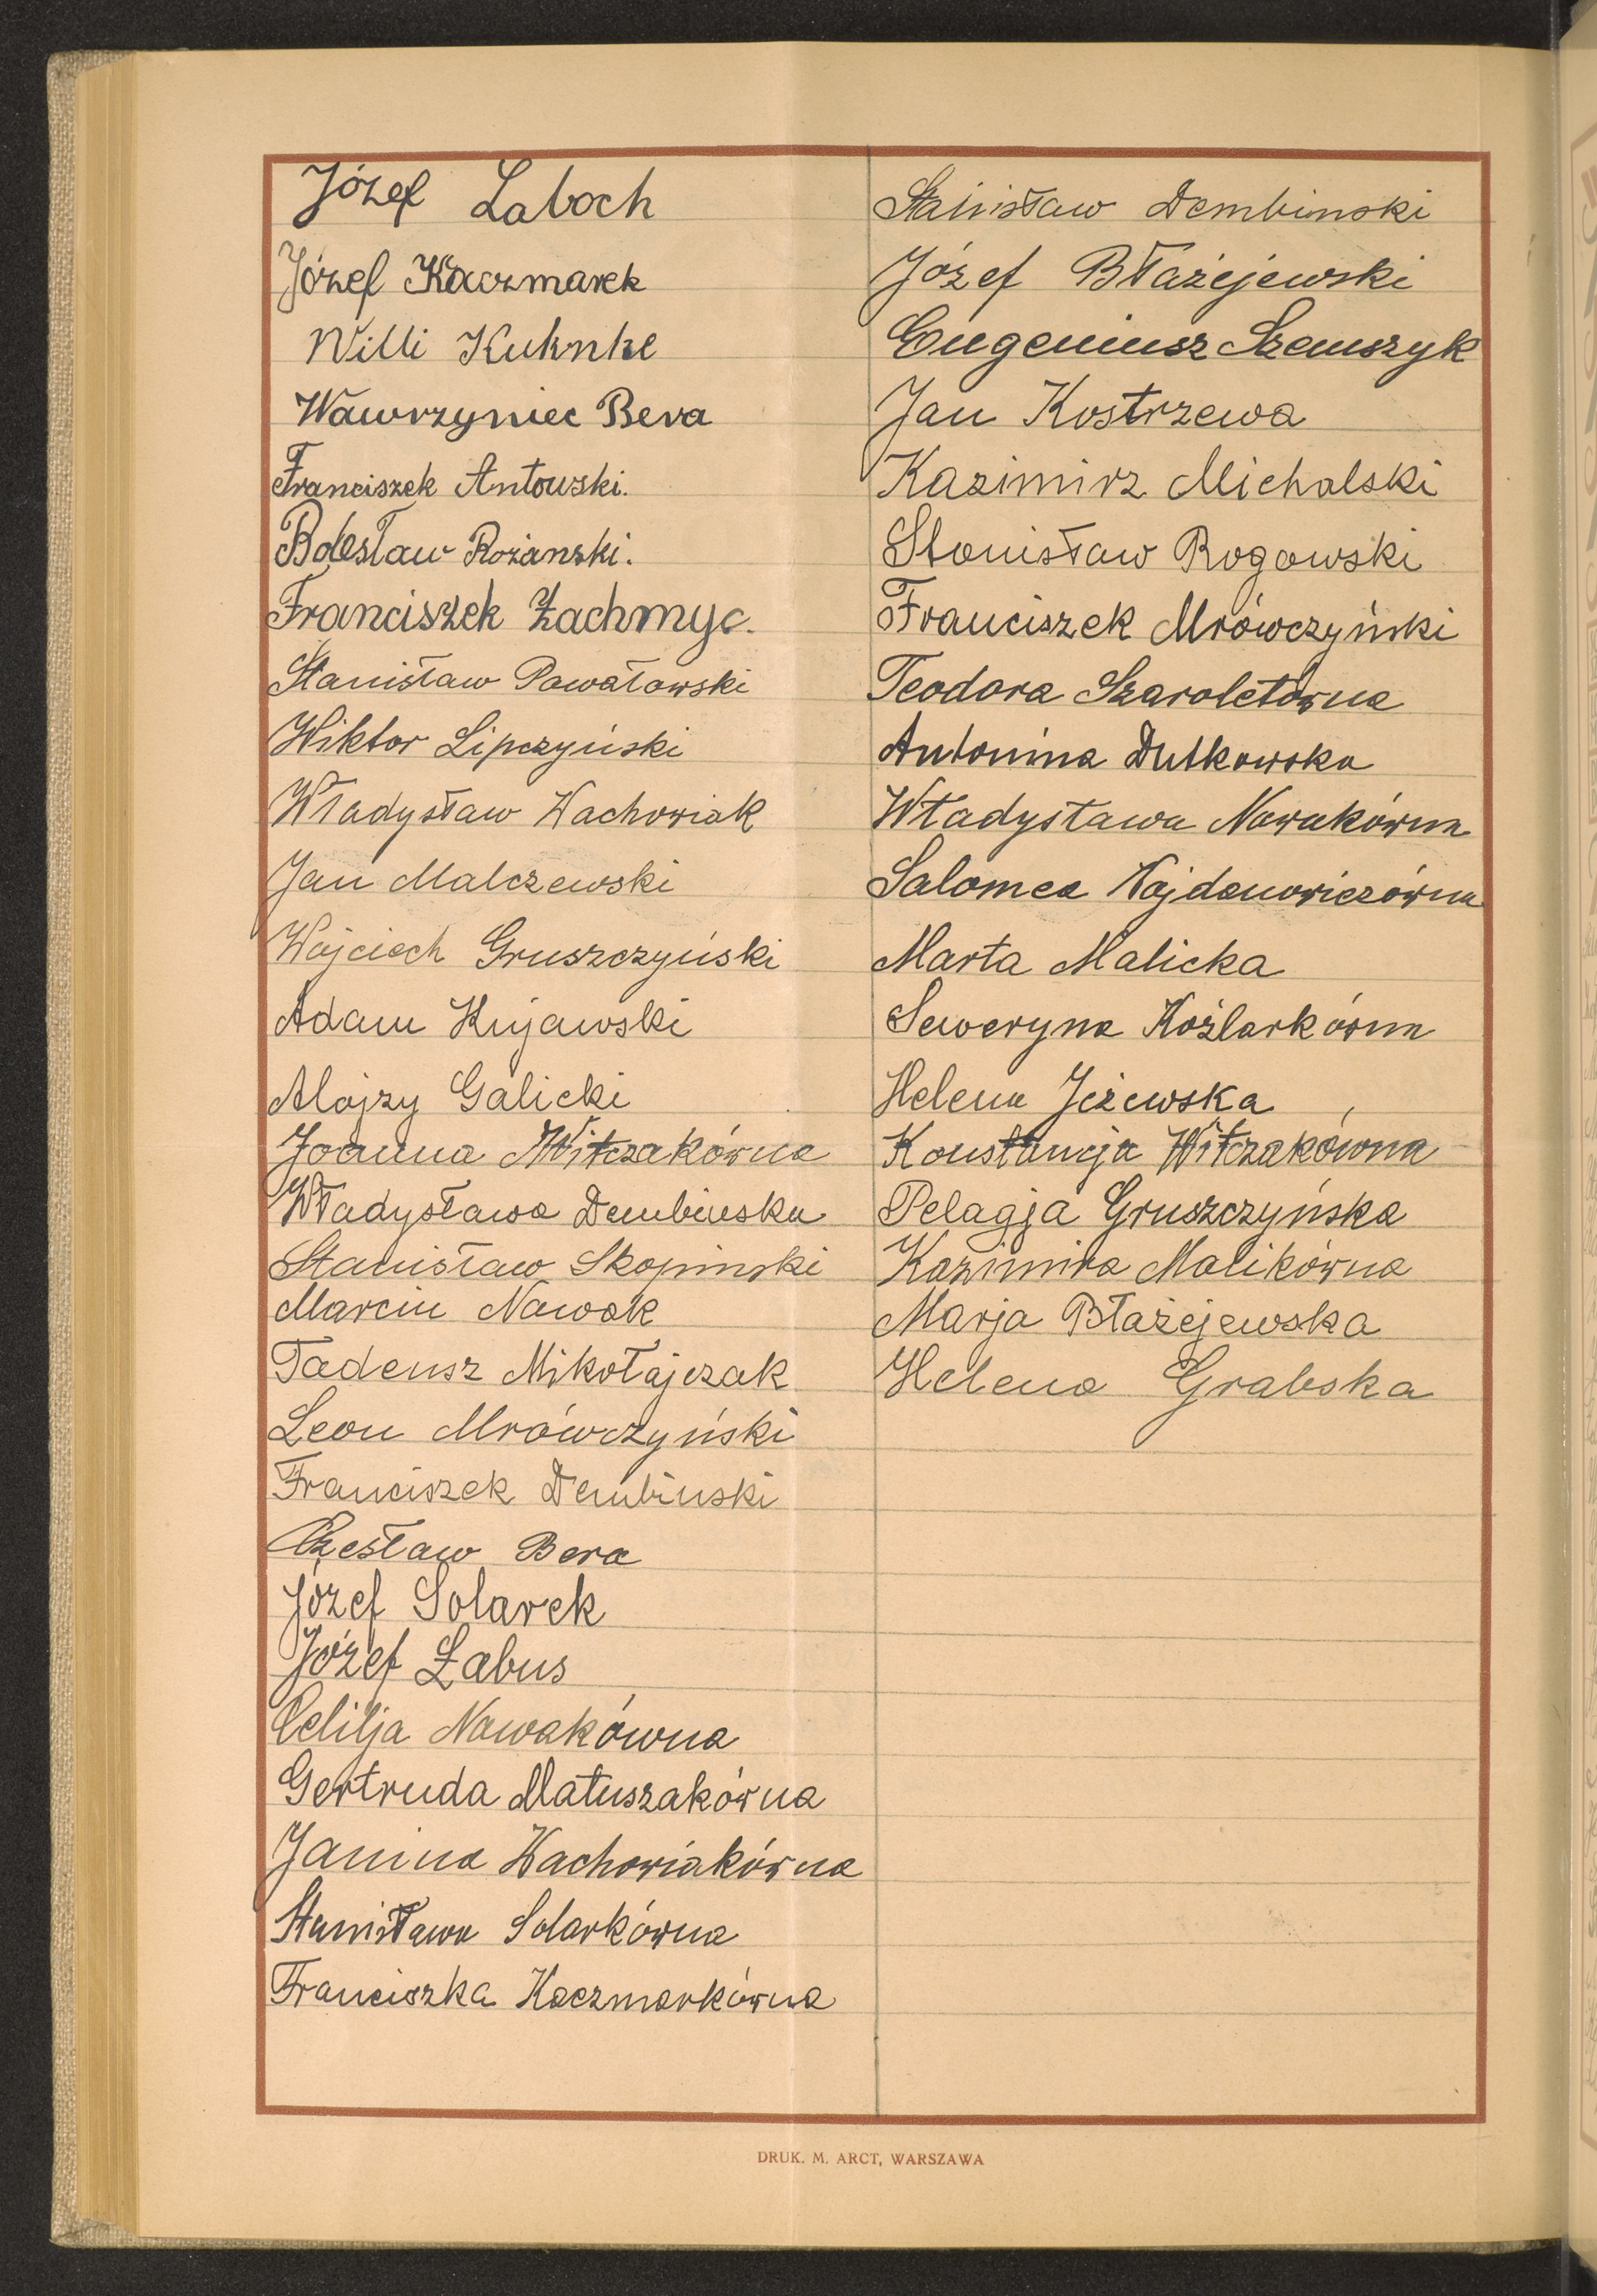 Józef Laboch
Józef Kaczmarek
Willi Kuhnke
Wawrzyniec Bera
Franciszek Antowski.
Bolesław Rożanski.
Franciszek Zachmyc.
Stanisław Powałowski
Wiktor Lipczyński
Władysław Wachowiak
Jan Malczewski
Wojciech Gruszczyński
Adam Kujawski
Alojzy Galicki
Joanna Witczakówna
Władysława Dembinska
Stanisław Skopinski
Marcin Nowak
Tadeusz Mikołajczak
Leon Mrówczyński
Franciszek Dembinski
Czesław Bera
Józef Solarek
Józef Łabus
Celilja Nowakówna
Gertruda Matuszakówna
Janina Wachowiakówna
Stanisława Solarkówna
Franciszka Kaczmarkówna
Stanisław Dembinski
Józef Błażejewski
Eugeniusz Szewszyk
Jan Kostrzewa
Kazimirz Michalski
Stonisław Rogowski
Franciszek Mrówczyński
Teodora Szaroletówna
Antonina Dutkowska
Władysława Nowakówna
Salomea Wojdanowiczówna
Marta Malicka
Seweryna Koźlarkówna
Helena Jeżewska
Konstancja Witczakówna
Pelagja Gruszczyńska
Kazimira Malikówna
Marja Błażejewska
Helena Grabska
DRUK. M. ARCT, WARSZAWA